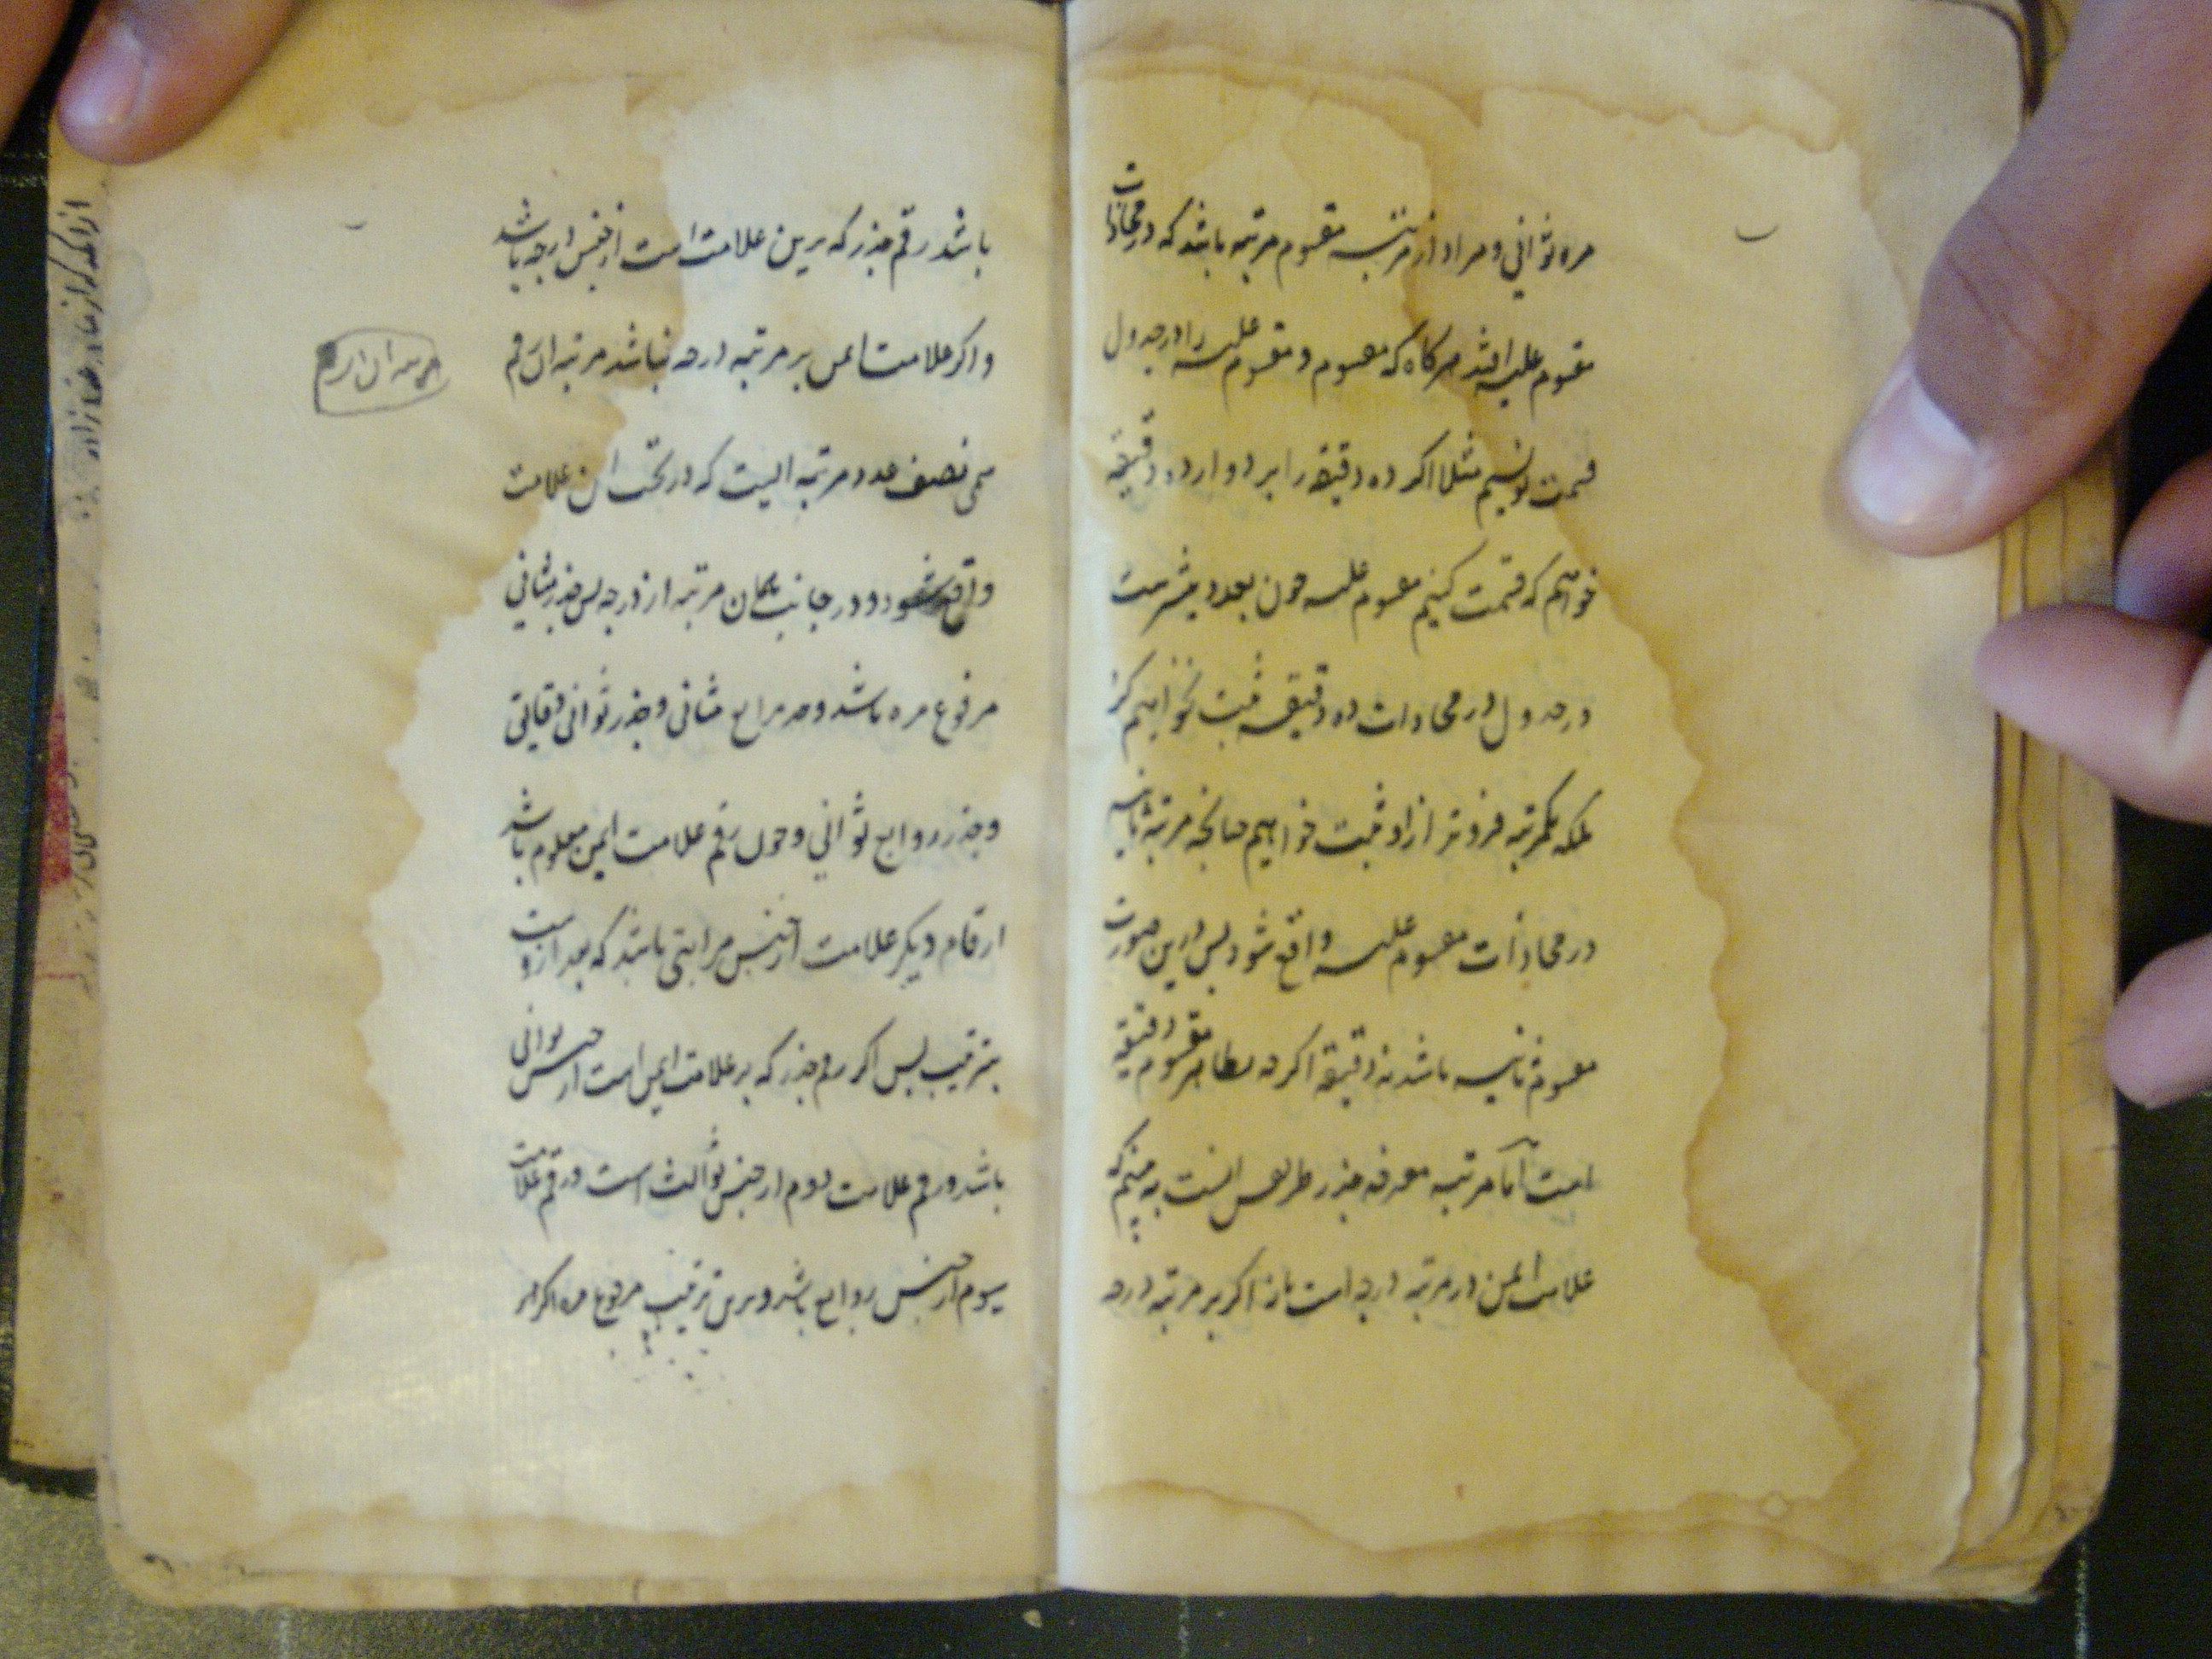 مره ثوانی و مراد از مرتبه مقسوم مرتبه باشد که در محاذات
مقسوم علیه افتد هرکاه که مقسوم و مقسوم علیه را در جدول
قسمت نویسیم مثلا اکر ده دقیقه را بر دوازده دقیقه
خواهیم که قسمت کنیم مقسوم علیه چون بعدد بیشترست
در جدول در محاذات ده دقیقه ثبت نخواهیم کرد
بلکه یکمرتبه فروتر ازو ثبت خواهیم چنانچه مرتبه ثانیه
در محاذات مقسوم علیه واقع شود پس درین صورت
مقسوم ثانیه باشد نه دقیقه اکرچه بظاهر مقسوم دقیقه
است اما مرتبه معرفه جذر طریقش اینست به بینیم که
علامت ایمن در مرتبه درجه است یا نه اکر بر مرتبه درجه
باشد رقم جذر که برین علامت است از جنس درجه باشد
و اکر علامت ایمن بر مرتبه درجه نباشد مرتبه ان رقم
سمی نصف عدد مرتبه ایست که در تحت ان علامت
واقع شود و در جانب همان مرتبه از درجه پس جذر مثانی
مرفوع مره باشد و جذر مرابع مثانی و جذر ثوانی دقایق
و جذر روابع ثوانی و چون رقم علامت ایمن معلوم باشد
ارقام دیکر علامت از جنس مراتبی باشد که بعد ازوست
بترتیب پس اکر رقم جذر که بر علامت ایمن است از جنس ثوانی
باشد و رقم علامت دوم از جنس ثوالث است و رقم علامت
سیوم از جنس روابع باشد و برین ترتیب مرفوع مره اکر